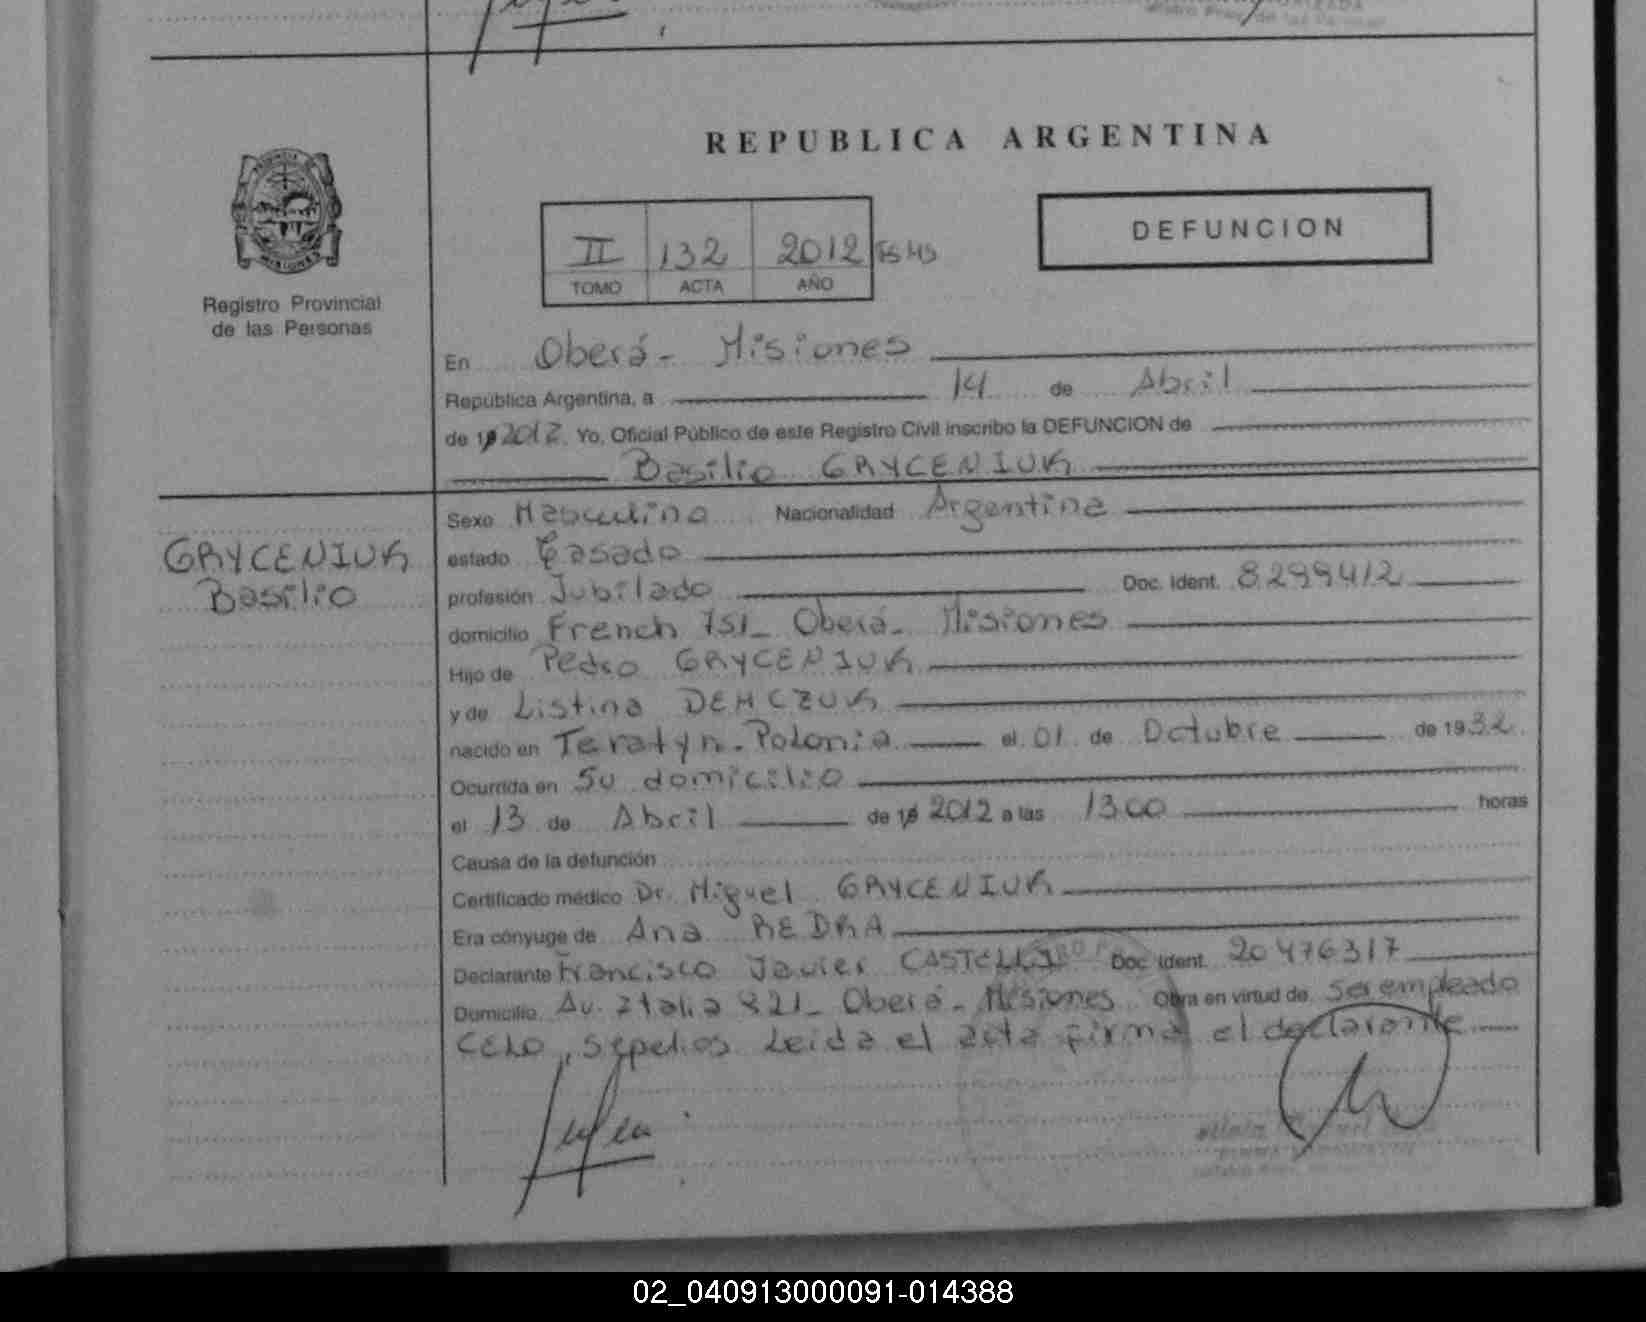 REPUBLICA ARGENTINA
Registro Provincial
de las Personas
II 132 2012
TOMO ACTA AÑO
DEFUNCION
En Oberá - Misiones
República Argentina, a 14 de Abril
de 19 2012. Yo, Oficial Público de este Registro Civil inscribo la DEFUNCION de
Basilio GRYCENIUK
GRYCENIUK
Basilio
Sexo Masculino Nacionalidad Argentina
estado Casado
profesión Jubilado Doc. Ident. 8299412
domicilio French 751 - Oberá - Misiones
Hijo de Pedro GRYCENIUK
y de Listina DEMCZUK
nacido en Teratyn - Polonia el 01 de Octubre de 1932.
Ocurrida en Su domicilio
el 13 de Abril de 19 2012 a las 13.00 horas
Causa de la defunción
Certificado médico Dr. Miguel GRYCENIUK
Era cónyuge de Ana REDRA
Declarante Francisco Javier CASTELLI Doc. Ident. 20476317
Domicilio Av. Italia 821 - Oberá - Misiones Obra en virtud de ser empleado
CELO, sepelios Leida el acta firma el declarante
02_040913000091-014388